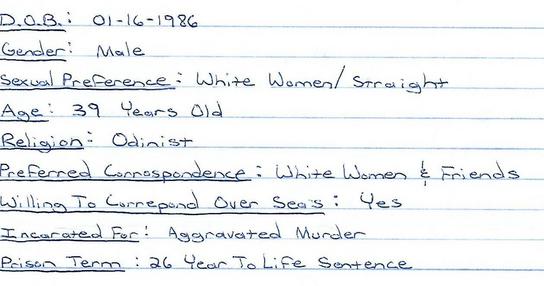 D.O.B.: 01-16-1986
Gender: Male
Sexual Preference: White Women/Straight
Age: 39 Years Old
Religion: Odinist
Preferred Corrospondence: White Women & Friends
Willing To Correpond Over Sea's: Yes
Incarated For: Aggravated Murder
Prison Term: 26 Year To Life Sentence